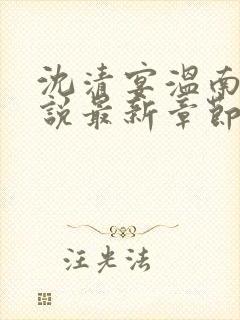 沈清宴温南
說最新章節
汪光法